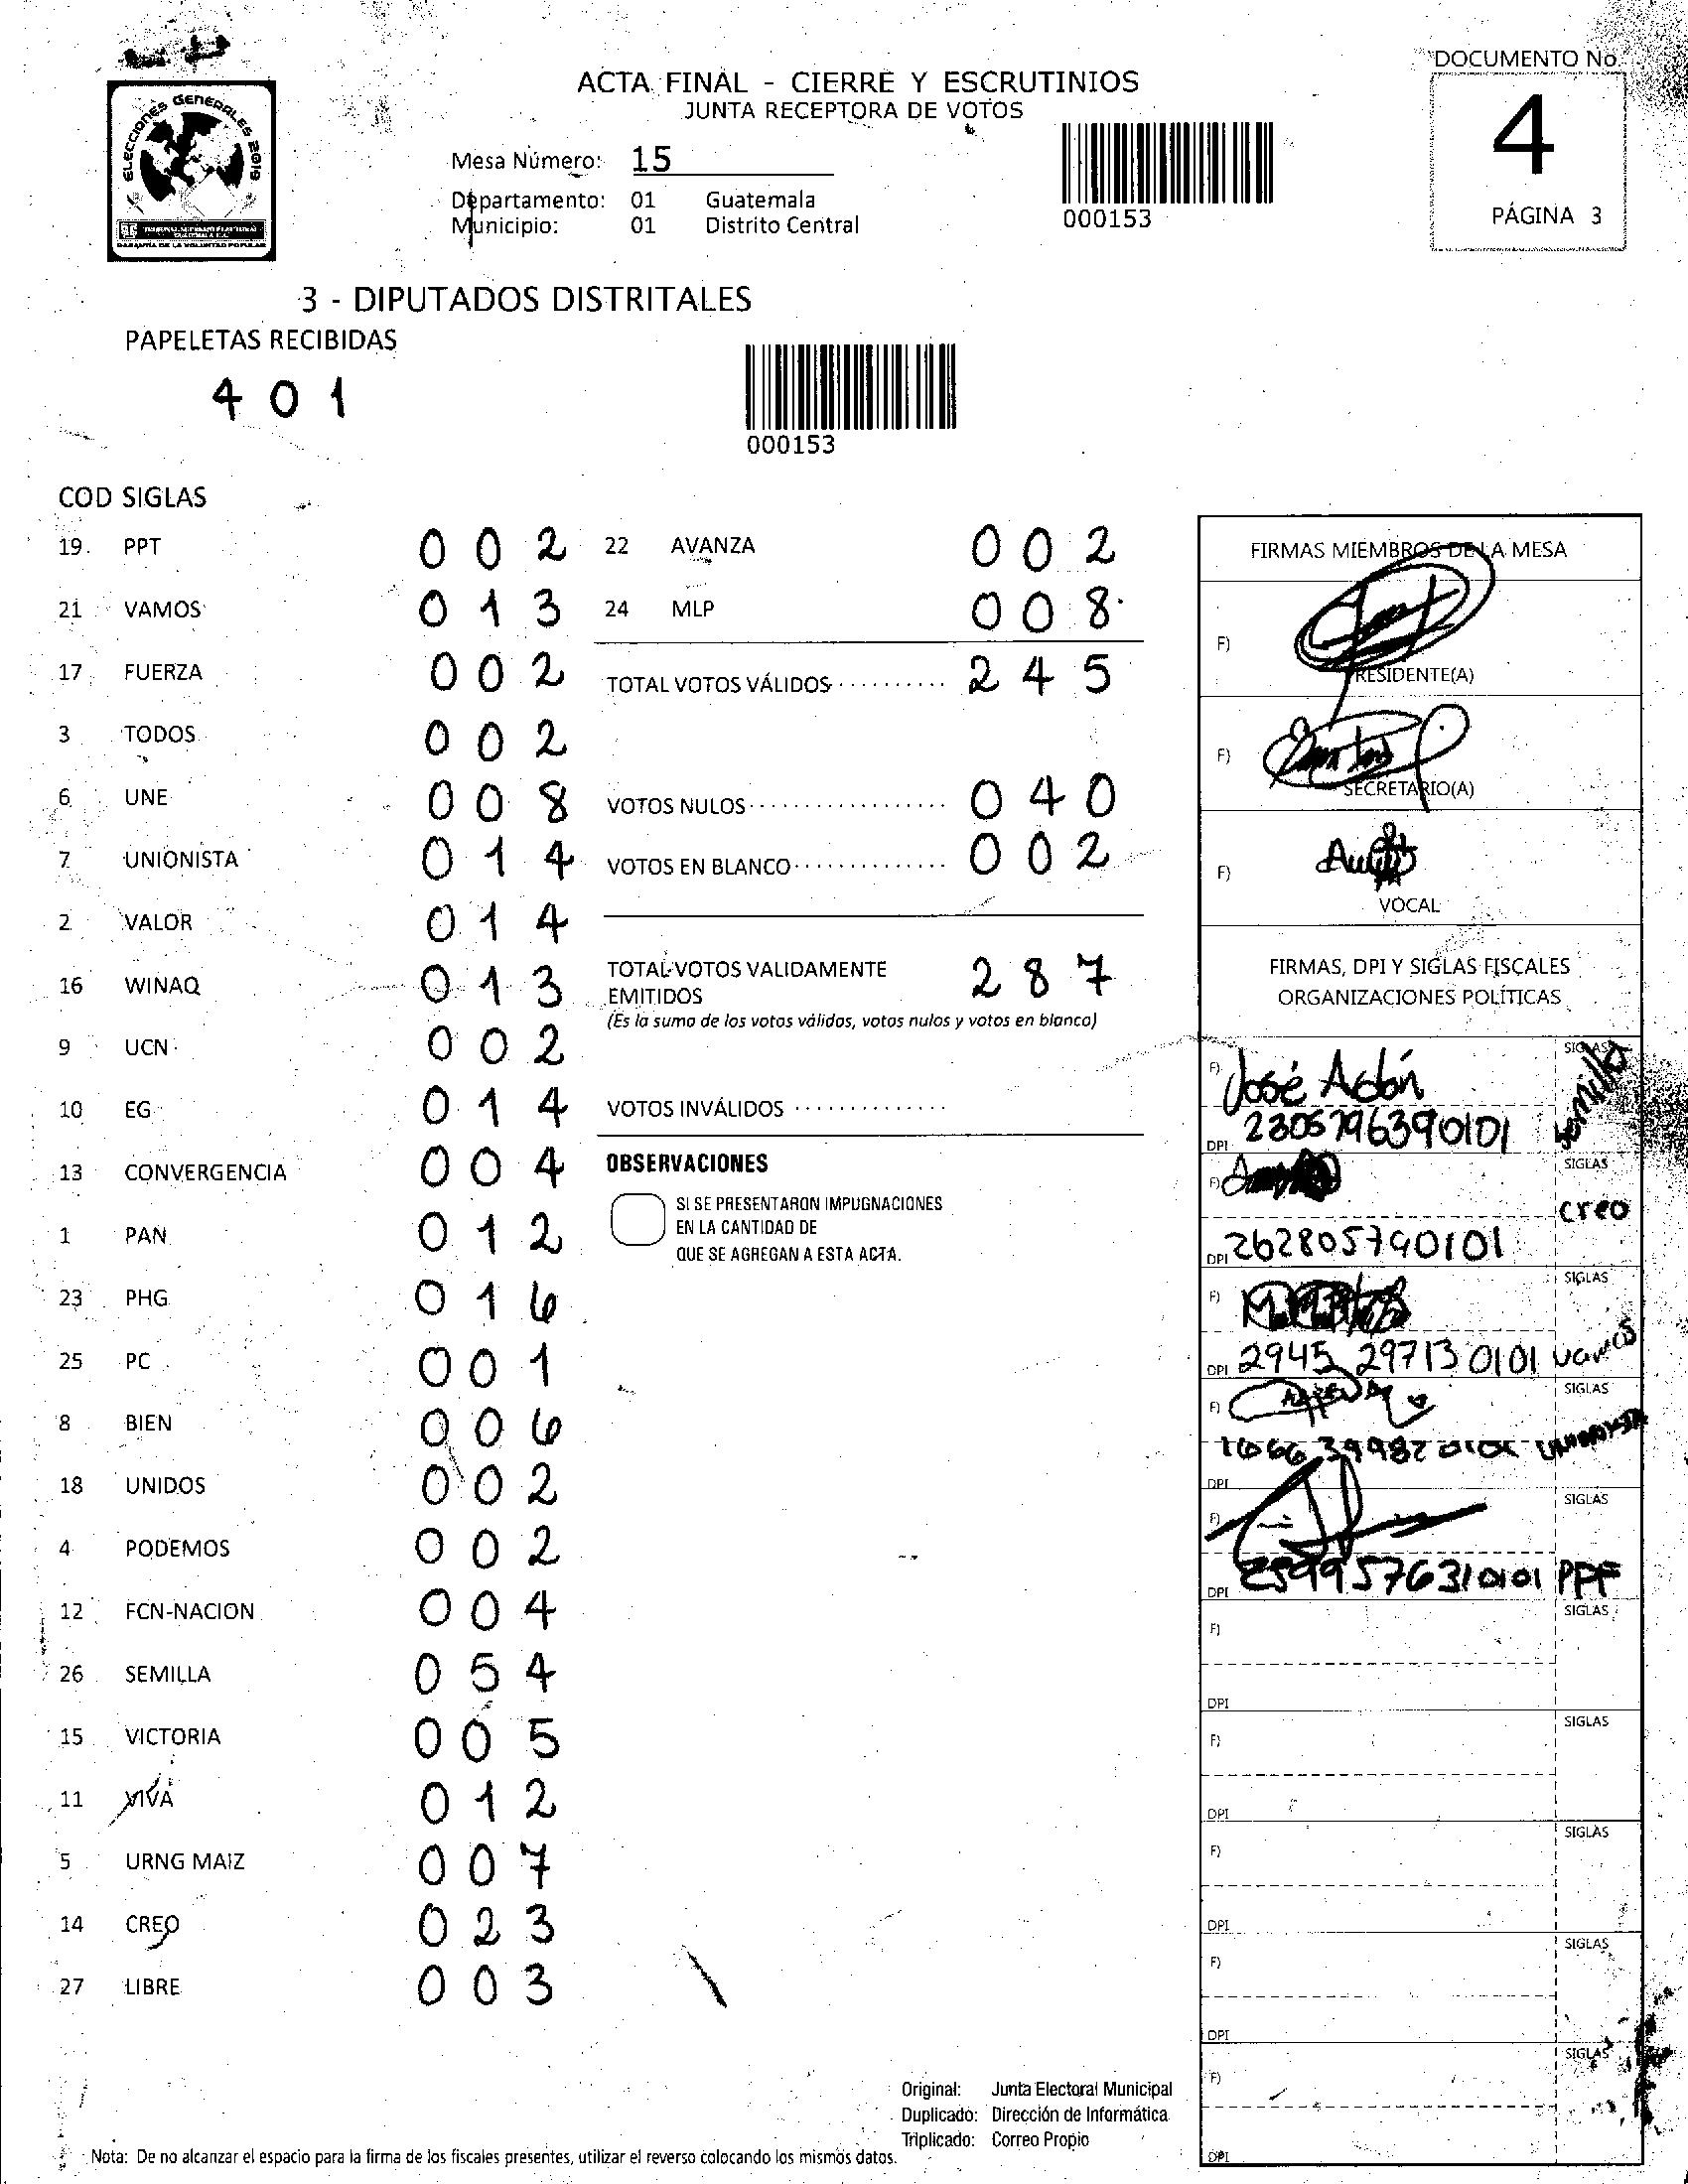 DOCUMENTO No.
4
PÁGINA 3
ELECCIONES GENERALES 2019
ACTA FINAL - CIERRE Y ESCRUTINIOS
JUNTA RECEPTORA DE VOTOS
Mesa Número: 15
Departamento: 01 Guatemala
Municipio: 01 Distrito Central
000153
3 - DIPUTADOS DISTRITALES
PAPELETAS RECIBIDAS
4 0 1
000153
COD SIGLAS
19 PPT 0 0 2
21 VAMOS 0 1 3
17 FUERZA 0 0 2
3 TODOS 0 0 2
6 UNE 0 0 8
7 UNIONISTA 0 1 4
2 VALOR 0 1 4
16 WINAQ 0 1 3
9 UCN 0 0 2
10 EG 0 1 4
13 CONVERGENCIA 0 0 4
1 PAN 0 1 2
23 PHG 0 1 6
25 PC 0 0 1
8 BIEN 0 0 6
18 UNIDOS 0 0 2
4 PODEMOS 0 0 2
12 FCN-NACION 0 0 4
26 SEMILLA 0 5 4
15 VICTORIA 0 0 5
11 VIVA 0 1 2
5 URNG MAIZ 0 0 7
14 CREO 0 2 3
27 LIBRE 0 0 3
22 AVANZA 0 0 2
24 MLP 0 0 8
TOTAL VOTOS VÁLIDOS 2 4 5
VOTOS NULOS 0 4 0
VOTOS EN BLANCO 0 0 2
TOTAL VOTOS VALIDAMENTE
EMITIDOS 2 8 7
(Es la suma de los votos válidos, votos nulos y votos en blanco)
VOTOS INVÁLIDOS
OBSERVACIONES
SI SE PRESENTARON IMPUGNACIONES
EN LA CANTIDAD DE
QUE SE AGREGAN A ESTA ACTA.
FIRMAS MIEMBROS DE LA MESA
F)
PRESIDENTE(A)
F)
SECRETARIO(A)
F)
VOCAL
FIRMAS, DPI Y SIGLAS FISCALES
ORGANIZACIONES POLÍTICAS
F) José Adán SIGLAS Semilla
DPI 2305796390101
F) SIGLAS creo
DPI 262805790101
F) SIGLAS
DPI 2945 29713 0101 vamos
F) SIGLAS
DPI
F) SIGLAS
DPI 2599576310101
F) SIGLAS
DPI
F) SIGLAS
DPI
F) SIGLAS
DPI
F) SIGLAS
DPI
F) SIGLAS
DPI
Original: Junta Electoral Municipal
Duplicado: Dirección de Informática
Triplicado: Correo Propio
Nota: De no alcanzar el espacio para la firma de los fiscales presentes, utilizar el reverso colocando los mismos datos.